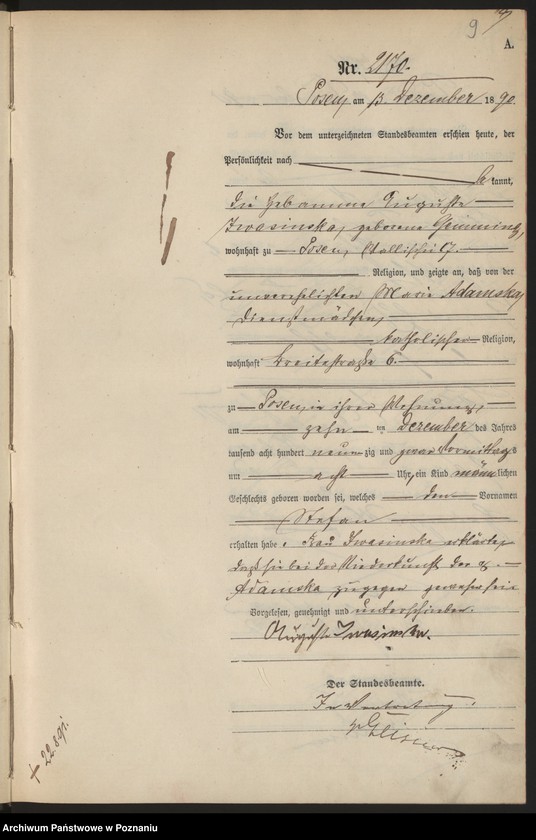 9
A.
Nr. 2170.
Posen, am 13. Dezember 1890.
Vor dem unterzeichneten Standesbeamten erschien heute, der
Persönlichkeit nach
be kannt,
die Hebamme Auguste
Iwasinska, geborene
wohnhaft zu Posen, Wallischei
Religion, und zeigte an, daß von der
unverehelichten Marie Adamska,
Dienstmädchen,
katholischer Religion,
wohnhaft Breitestraße 6.
zu Posen, in ihrer Wohnung,
am zehn ten Dezember des Jahres
tausend acht hundert neun zig und zwar Vormittags
um acht Uhr, ein Kind männ lichen
Geschlechts geboren worden sei, welches den Vornamen
Stefan
erhalten habe. Frau Iwasinska erklärte,
daß sie bei der Niederkunft der
Adamska zugegen gewesen sei.
Vorgelesen, genehmigt und unterschrieben.
Auguste Iwasinska.
Der Standesbeamte.
In Vertretung.
Archiwum Państwowe w Poznaniu